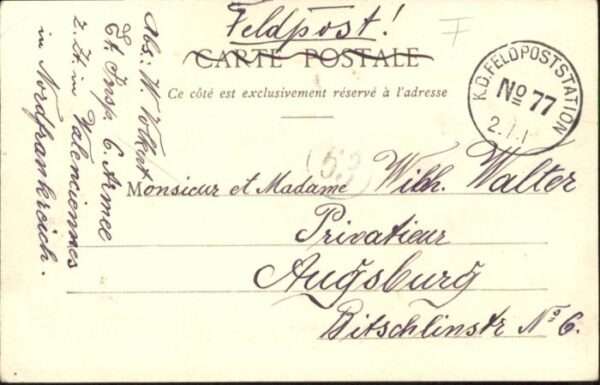 Feldpost!
CARTE POSTALE
Ce côté est exclusivement réservé à l'adresse
K.D.FELDPOSTSTATION
No 77
2.
53
Monsieur et Madame Wilh. Walter
Privatieur
Augsburg
Bitschlinstr No 6.
Abs: W. Volkert
Et. Insp. 6. Armee
z. Zt. in Valenciennes
in Nordfrankreich.